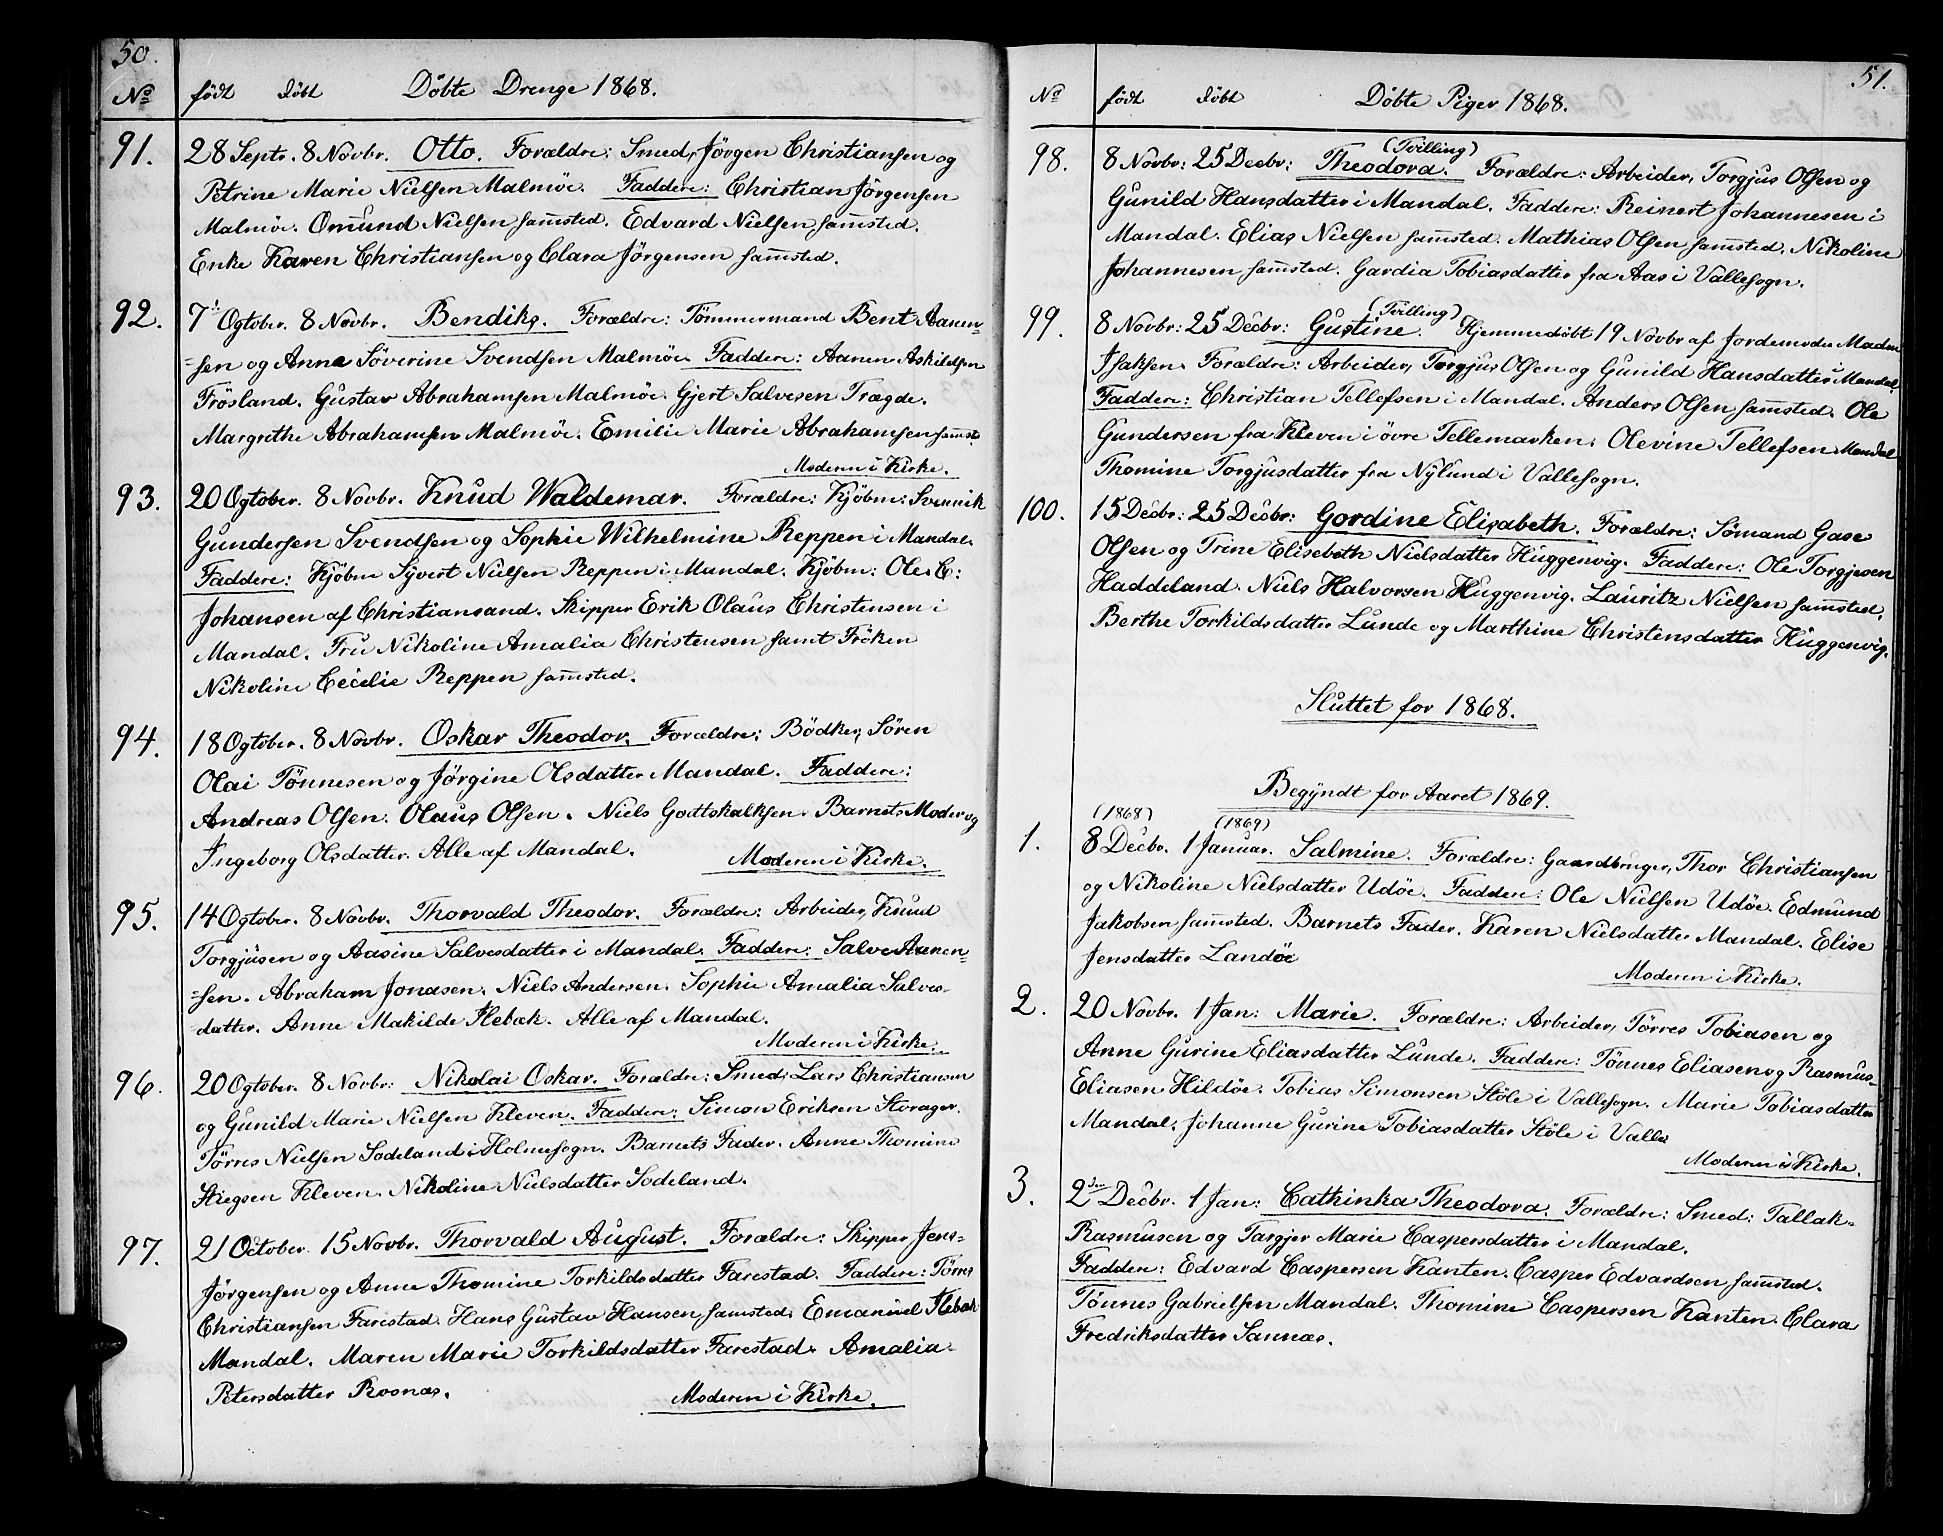 50.
No født döbt Döbte Drenge 1868.
91. 28 Septr. 8 Novbr. Otto. Forældre: Smed, Jörgen Christiansen og
Petrine Marie Nielsen Malmöe. Faddere: Christian Jörgensen
Malmöe. Omund Nielsen sam̄sted. Edvard Nielsen sam̄sted.
Enke Karen Christiansen og Clara Jörgensen sam̄sted.
92. 7de Ogtober. 8 Novbr. Bendiks. Forældre: Tömmermand Bent Aanen-
-sen og Anne Söverine Svendsen Malmöe. Faddere: Aanen Askildsen
Frösland. Gustav Abrahamsen Malmöe. Gjert Salvesen Trægde.
Margrethe Abrahamsen Malmöe. Emilie Marie Abrahamsen samst.
Moderen i Kirke.
93. 20 Ogtober. 8 Novbr. Knud Waldemar. Forældre: Kjöbm: Svennik
Gundersen Svendsen og Sophie Wilhelmine Reppen i Mandal.
Faddere: Kjöbm Syvert Nielsen Reppen i Mandal. Kjöbm: Ole C:
Johansen af Christiansand. Skipper Erik Olaus Christensen i
Mandal. Fru Nikoline Amalia Christensen samt Fröken
Nikoline Cecilie Reppen sam̄sted.
94. 18 Ogtober. 8 Novbr. Oskar Theodor. Forældre: Bödker, Sören
Olai Tönnesen og Jörgine Olsdatter Mandal. Faddere:
Andreas Olsen. Olaus Olsen. Niels Godtskalksen. Barnets Moder og
Ingeborg Olsdatter. Alle af Mandal. Moderen i Kirke.
95. 14 Ogtober. 8 Novbr. Thorvald Theodor. Forældre: Arbeider, Knud
Torgjusen og Aasine Salvesdatter i Mandal. Faddere: Salve Aanen-
-sen. Abraham Jonasen. Niels Andersen. Sophie Amalia Salves-
datter. Anne Makilde Flebæk. Alle af Mandal.
Moderen i Kirke.
96. 20 Ogtober. 8 Novbr: Nikolai Oskar. Forældre: Smed, Lars Christiansen
og Gunild Marie Nielsen Kleven. Faddere: Simon Eriksen Storager.
Törres Nielsen Sodeland i Holmesogn. Barnets Fader. Anne Thomine
Stiegsen Kleven. Nikoline Nielsdatter Sodeland.
97. 21 October. 15 Novbr. Thorvald August. Forældre: Skipper Jens-
Jörgensen og Anne Thomine Torkildsdatter Farestad. Faddere: Törres
Christiansen Farestad. Hans Gustav Hansen, sam̄sted. Emanuel Flebæk
Mandal. Maren Marie Torkildsdatter Farestad. Amalia
Petersdatter Rosnæs. Moderen i Kirke.
51.
No født döbt Döbte Piger 1868.
(Tvilling)
98. 8 Novbr: 25 Decbr: Theodora. Forældre: Arbeider, Torgjus Olsen og
Gunild Hansdatter i Mandal. Faddere: Reinert Johannesen i
Mandal. Elias Nielsen sam̄sted. Mathias Olsen sam̄sted. Nikoline
Johannesen sam̄sted. Gardia Tobiasdatter fra Aas i Vallesogn.
(Tvilling)
99. 8 Novbr: 25 Decbr: Gustine. Hjemmedöbt 19 Novbr af Jordemoder Madm
Isaksen. Forældre: Arbeider, Torgjus Olsen og Gunild Hansdatter i Mandal.
Faddere: Christian Tellefsen i Mandal. Anders Olsen sam̄sted. Ole
Gundersen fra Kleven i övre Tellemarken. Olevine Tellefsen Mandal
Thomine Torgjusdatter fra Nylund i Vallesogn.
100. 15 Decbr: 25 Decbr: Gordine Elisabeth. Forældre: Sömand Gase
Olsen og Trine Elisebeth Nielsdatter Huggenvig. Faddere: Ole Torgjesen
Haddeland. Niels Halvorsen Huggenvig. Lauritz Nielsen sam̄sted.
Berthe Torkildsdatter Lunde og Marthine Christensdatter Huggenvig.
Sluttet for 1868.
Begyndt for Aaret 1869.
(1868) (1869)
1. 8 Decbr. 1 Januar. Salmine. Forældre: Gaardbruger, Thor Christiansen
og Nikoline Nielsdatter Udöe. Faddere: Ole Nielsen Udöe. Edmund
Jakobsen sam̄sted. Barnets Fader. Karen Nielsdatter Mandal. Elise
Jensdatter Landöe
Moderen i Kirke.
2. 20 Novbr. 1 Jan: Marie. Forældre: Arbeider, Törres Tobiasen og
Anne Gurine Eliasdatter Lunde. Faddere: Tönnes Eliasen og Rasmus
Eliasen Hildöe. Tobias Simonsen Stöle i Vallesogn. Marie Tobiasdatter
Mandal. Johanne Gurine Tobiasdatter Stöle i Valle
Moderen i Kirke.
3. 2den Decbr. 1 Jan: Cathinka Theodora. Forældre: Smed: Tallak-
Rasmusen og Targjer Marie Caspersdatter i Mandal.
Faddere: Edvard Caspersen Kanten. Casper Edvardsen sam̄sted.
Tönnes Gabrielsen Mandal. Thomine Caspersen Kanten. Clara
Fredriksdatter Sannæs.